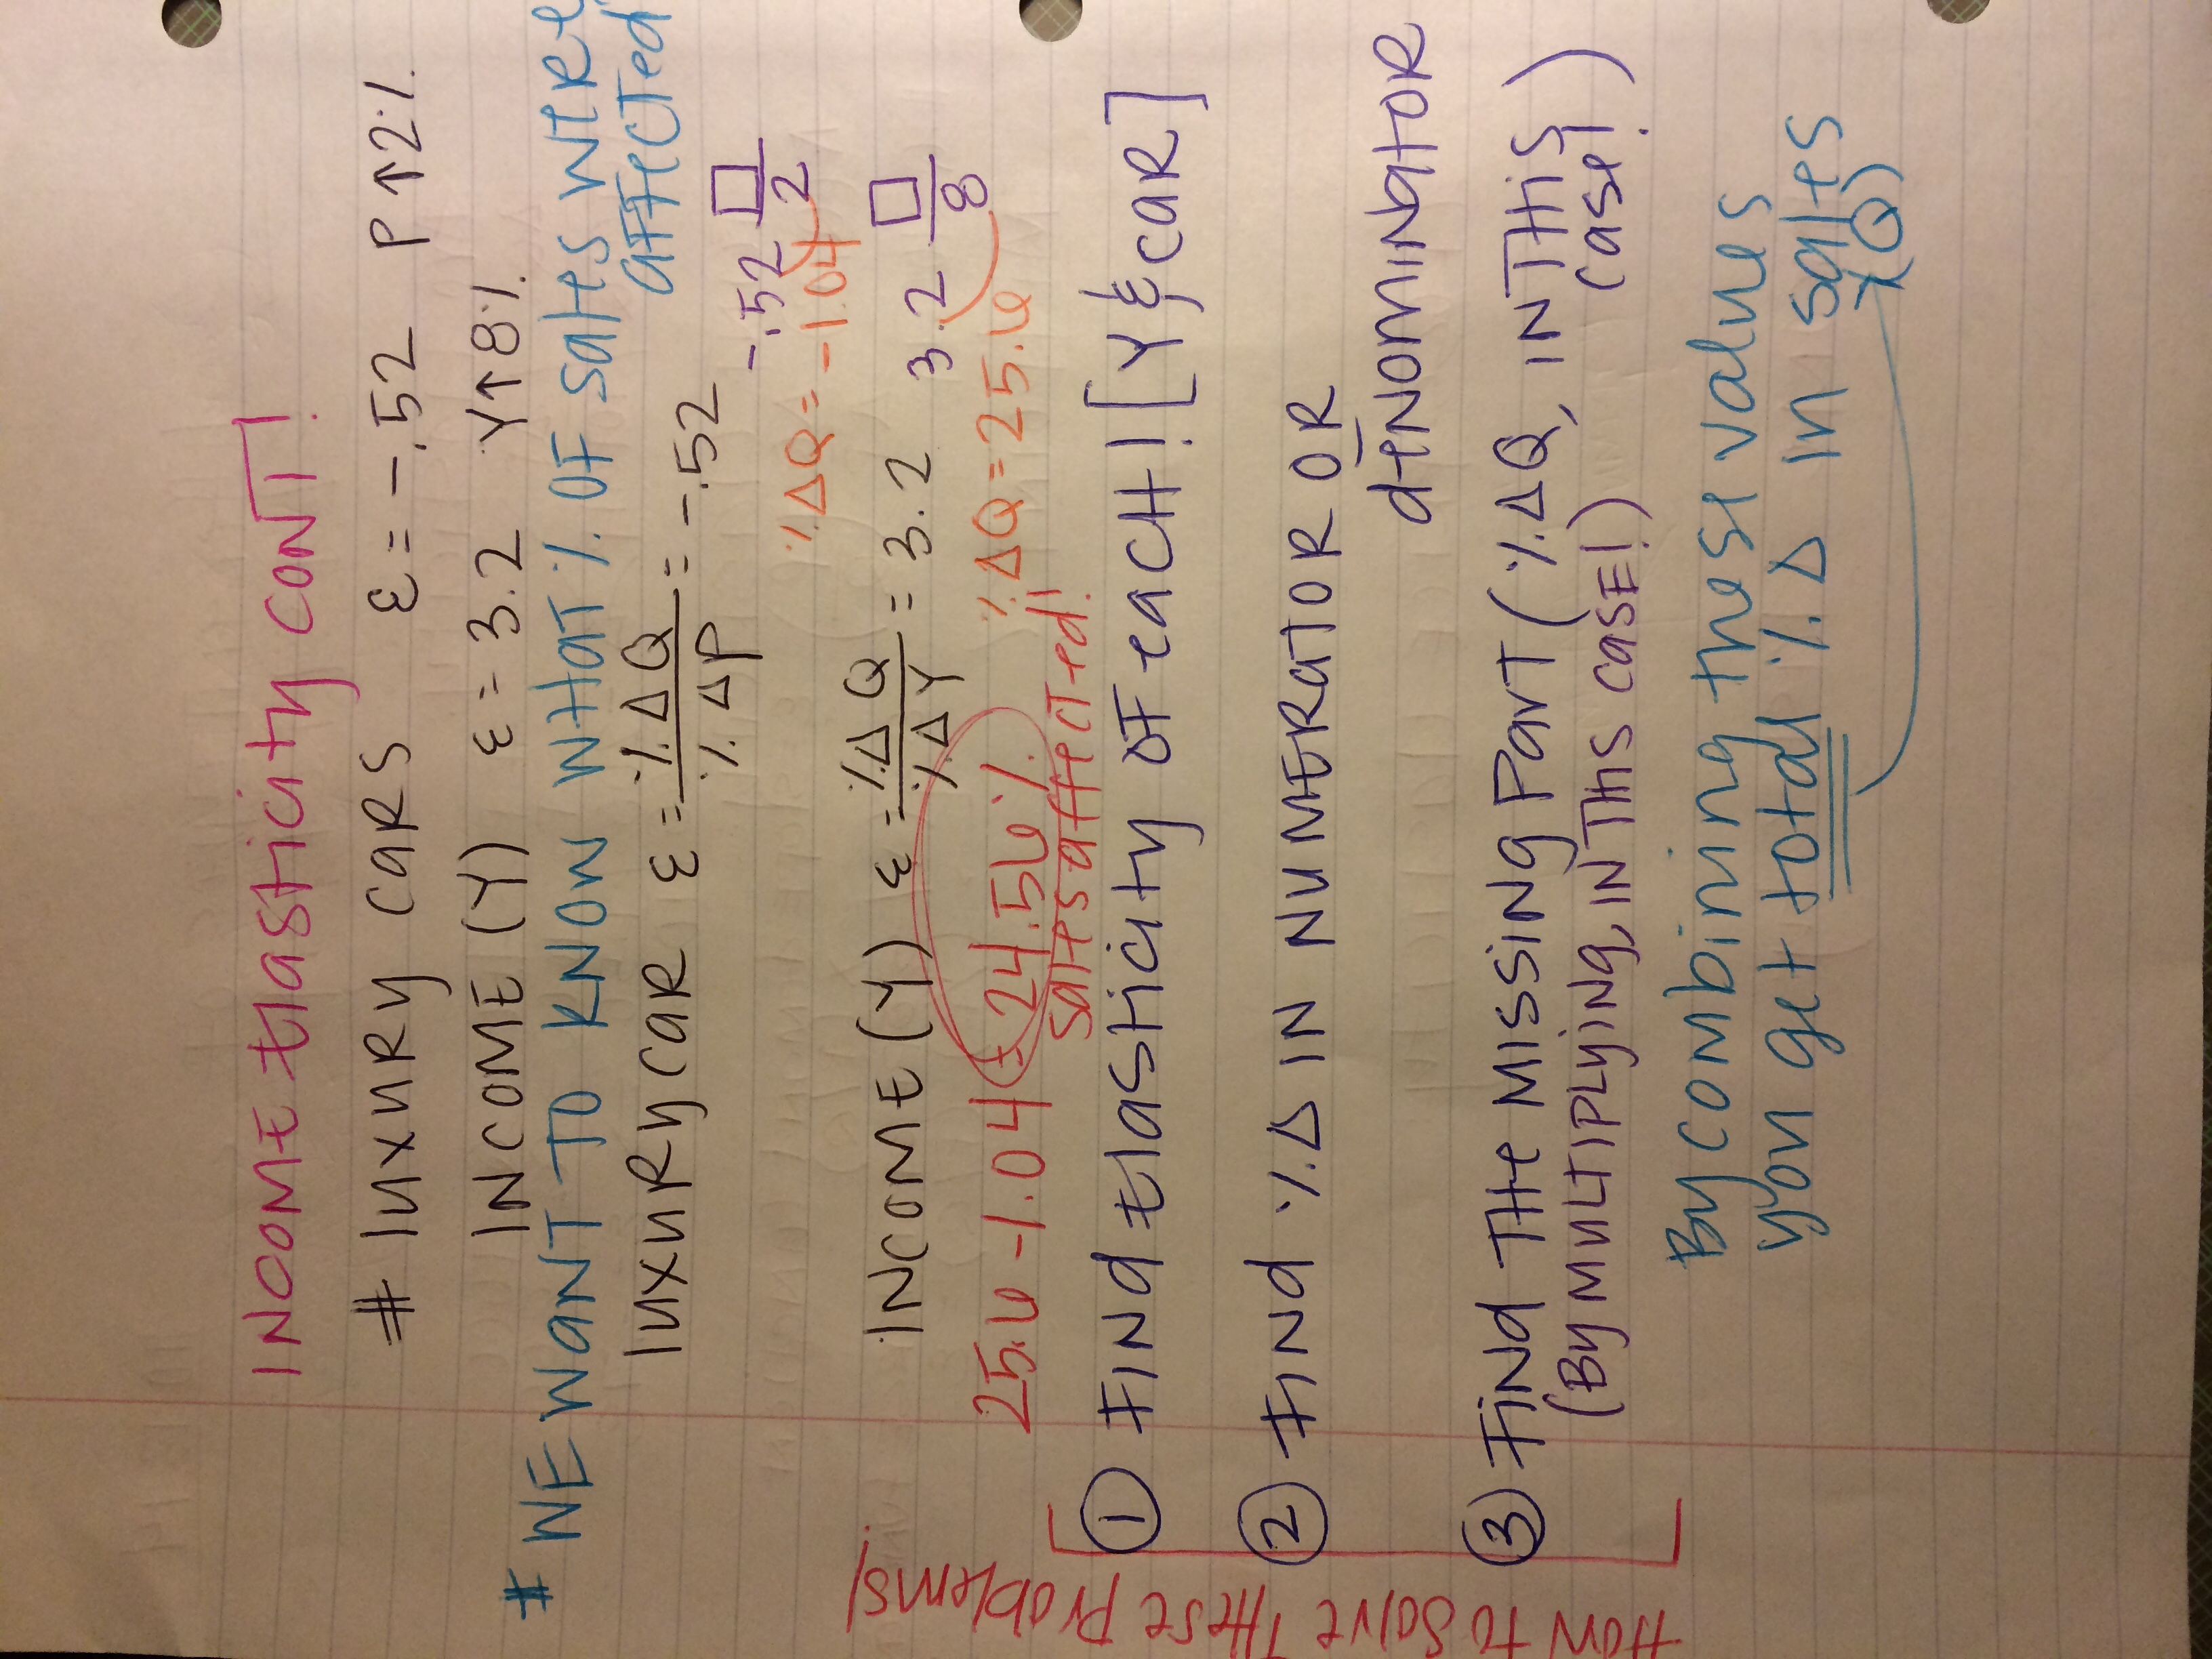 INCOME Elasticity CONT!
# luxury cars ε = -.52 P↑2%
INCOME (Y) ε = 3.2 Y↑8%
# WE WANT TO KNOW WHAT % OF Sales WERE
affected
luxury car ε = %ΔQ / %ΔP = -.52
-.52 □/2
%ΔQ = -1.04
INCOME (Y) ε = %ΔQ / %ΔY = 3.2
3.2 □/8
%ΔQ = 25.6
25.6 - 1.04 = 24.56%
Sales affected!
How to solve These Problems!
① Find Elasticity of each! [Y & car]
② Find %Δ IN NUMERATOR OR
dENOMINATOR
③ Find THe MISSING Part (%ΔQ, IN THiS
case!)
(By MULTIPLYING, IN THIS CASE!)
By combining these values
you get total %Δ in sales
(Q)